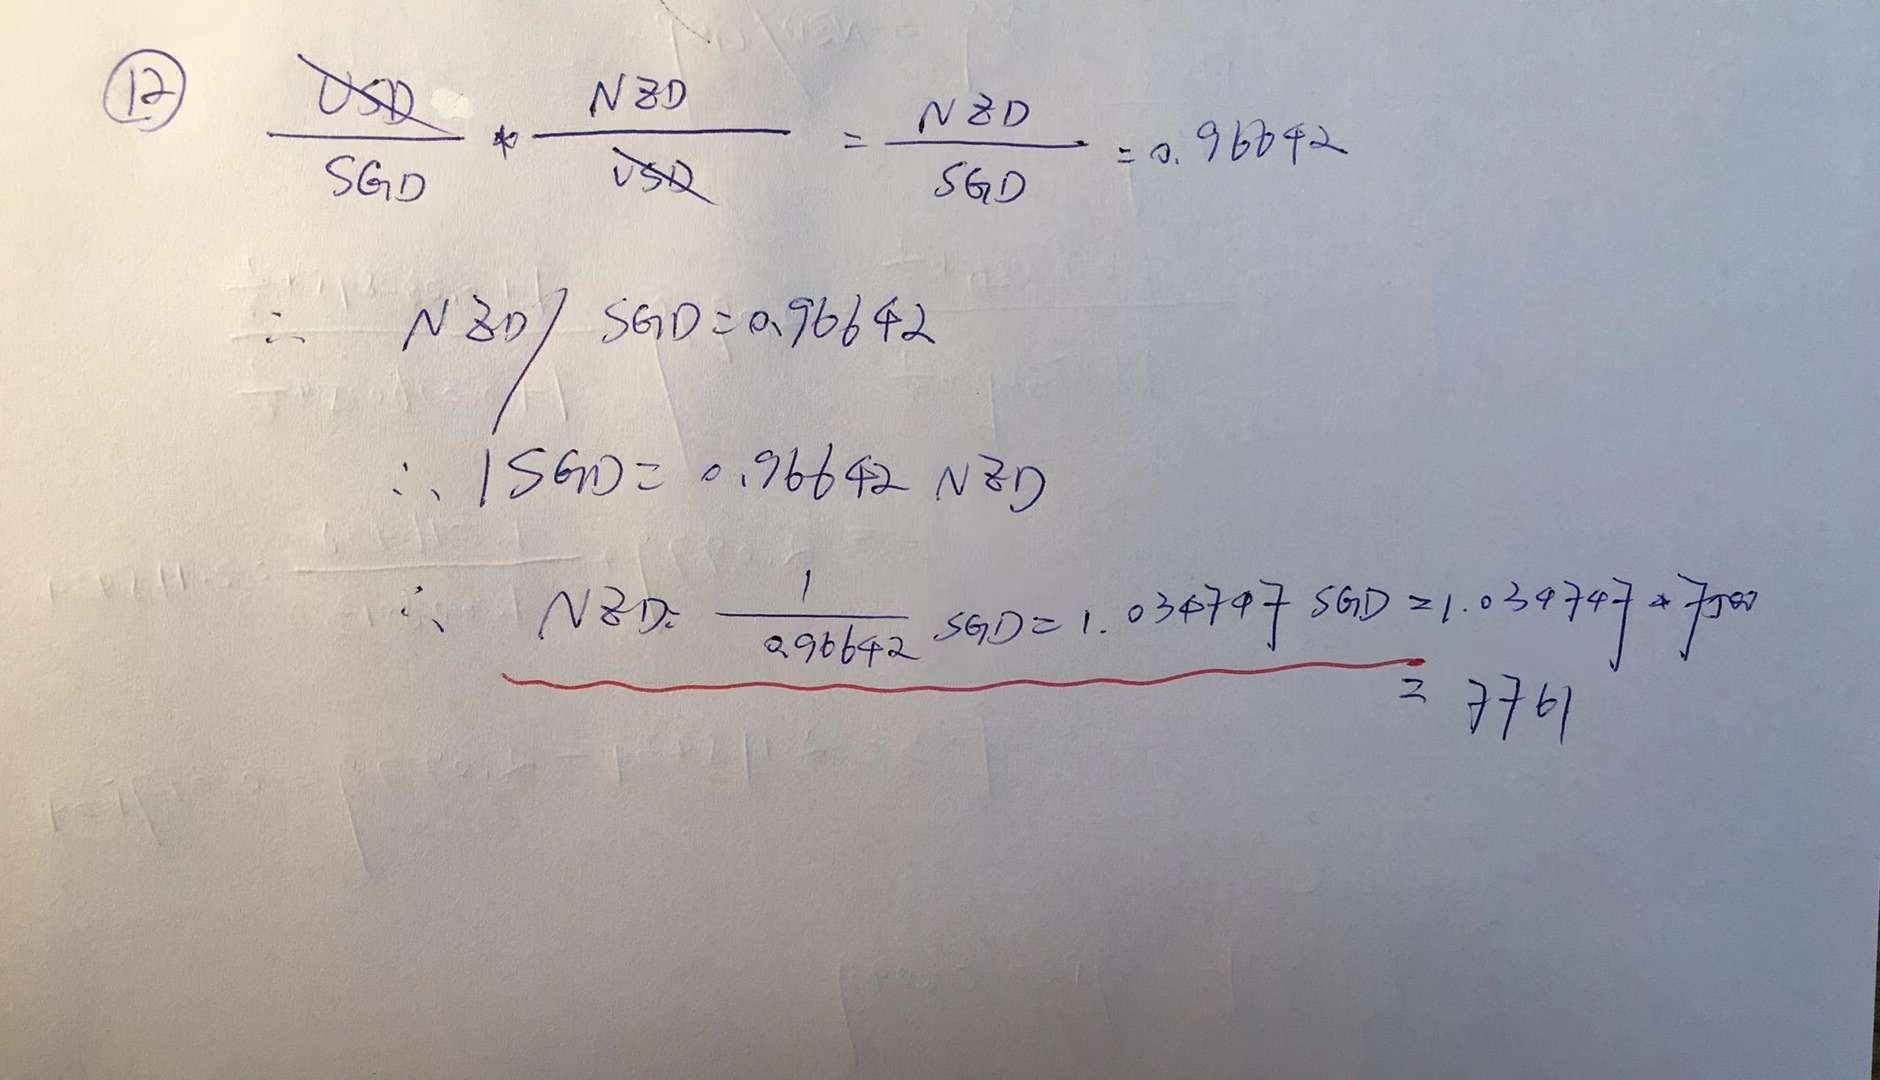 12 USD/SGD * NZD/USD = NZD/SGD = 0.96642
∴ NZD/SGD = 0.96642
∴ 1 SGD = 0.96642 NZD
∴ NZD = 1/0.96642 SGD = 1.034747 SGD = 1.034747 * 7500
= 7761